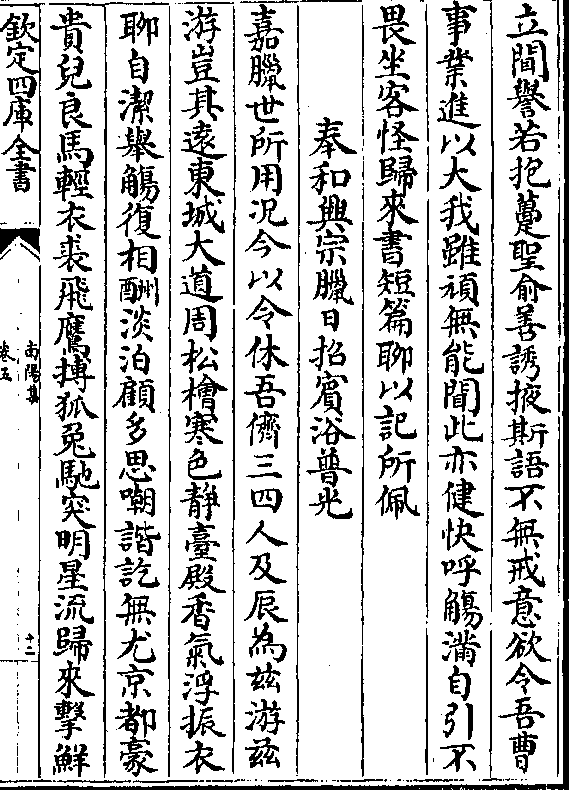 立間譽若抱蘽聖俞善誘掖斯語不無戒意欲令吾曹
事業進以大我雖頑無能聞此亦健快呼觴滿自引不
畏坐客怪歸來書短篇聊以記所佩
奉和興宗臘日招賓浴普光
嘉臘世所用況今以令休吾儕三四人及辰為兹游兹
游豈其遠東城大道周松檜寒色靜臺殿香氣浮振衣
聊自潔舉觴復相酬淡泊顧多思嘲諧訖無尤京都豪
貴兒良馬輕衣裘飛鷹搏狐兔馳突明星流歸來擊鮮
欽定四庫全書
南陽集
卷五
十二